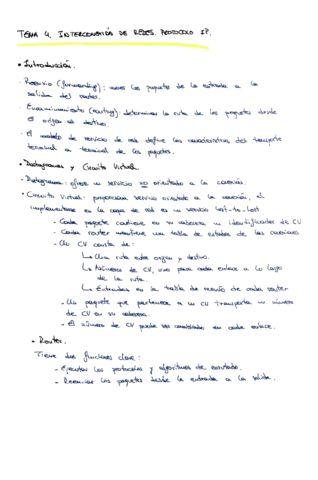 TEMA 4. INTERCONEXIÓN DE REDES. PROTOCOLO IP.
• Introducción.
- Reenvío (forwarding): mover los paquetes de la entrada a la
salida del router.
- Encaminamiento (routing): determinar la ruta de los paquetes desde
el origen al destino.
- El modelo de servicio de red define las características del transporte
terminal a terminal de los paquetes.
• Datagramas y Circuito Virtual.
- Datagramas: ofrece un servicio no orientado a la conexión.
• Circuito Virtual: proporciona servicio orientado a la conexión, al
implementarse en la capa de red es un servicio host-to-host
- Cada paquete contiene en su cabecera un identificador de CV
- Cada router mantiene una tabla de estados de las conexiones
- Un CV consta de:
↳ Una ruta entre origen y destino.
↳ Números de CV, uno para cada enlace a lo largo
de la ruta.
↳ Entradas en la tabla de reenvío de cada router
- Un paquete que pertenece a un CV transporta un número
de CV en su cabecera.
- El número de CV puede ser cambiado en cada enlace.
• Router.
Tiene dos funciones clave:
- Ejecutar los protocolos y algoritmos de enrutado.
- Reenviar los paquetes desde la entrada a la salida.